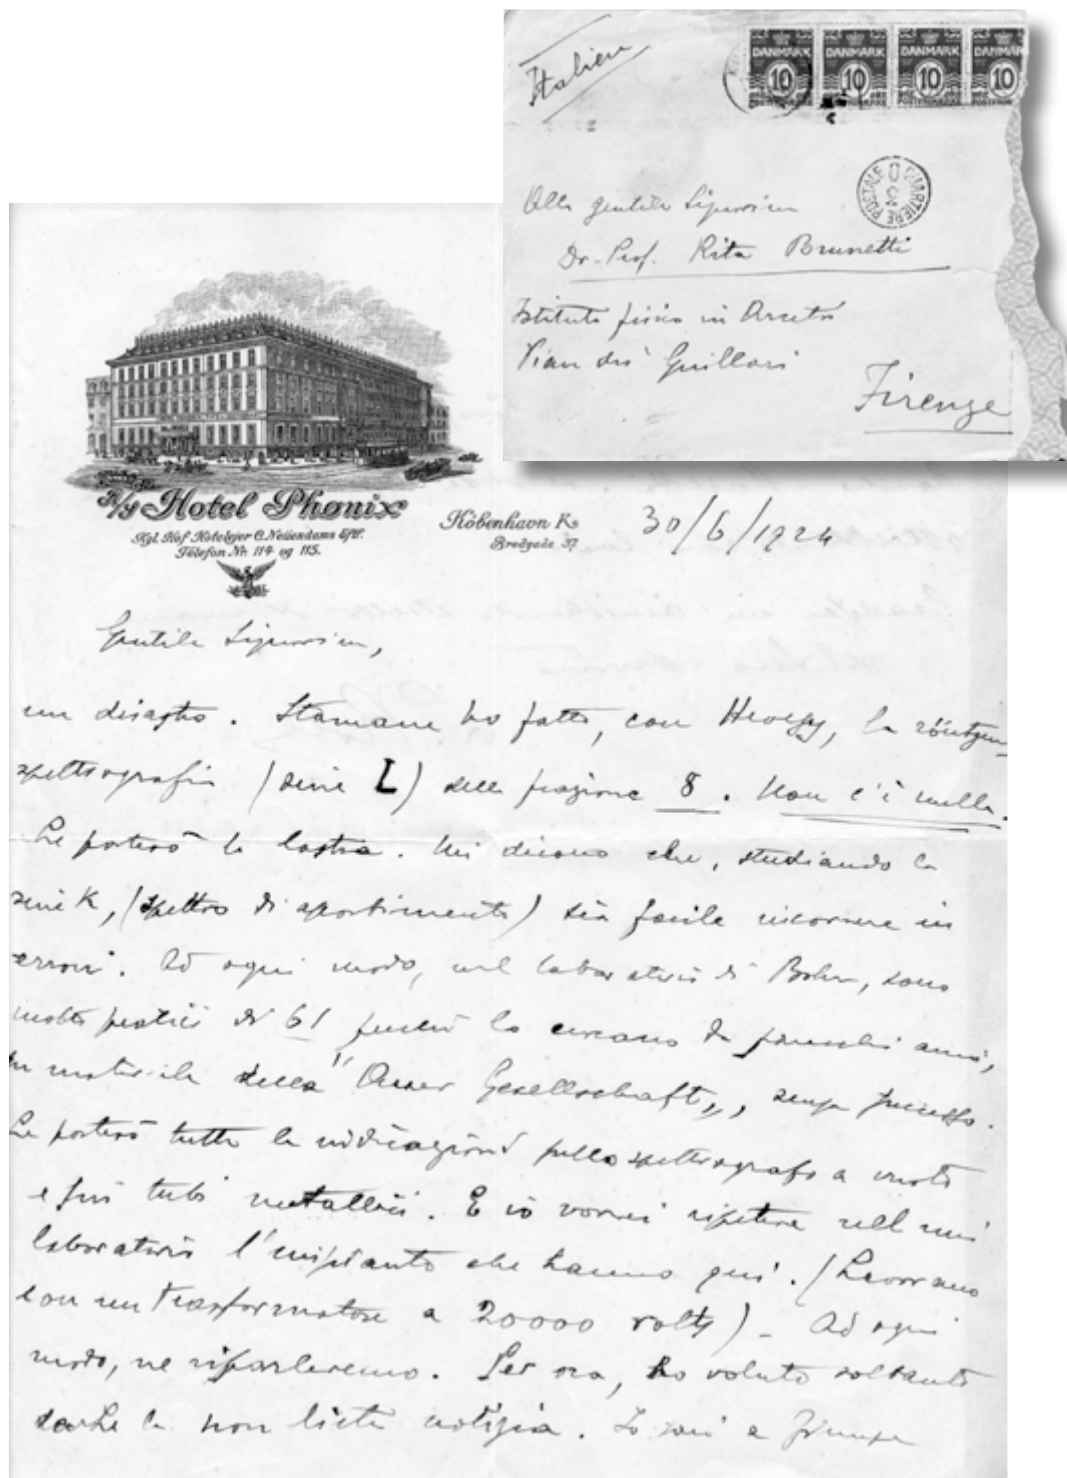 Italien
DANMARK DANMARK DANMARK DANMARK
10 10 10 10
QUARTIERE POSTALE
Alla gentile Signorina
Dr. Prof. Rita Brunetti
Istituto fisico in Arcetri
Pian dei Giullari
Firenze
A/S Hotel Phønix
Kgl. Hof Hotelejer C. Neiiendams Eftf.
Telefon Nr. 114 og 115.
København K.
Bredgade 37
30/6/1924
Gentile Signorina,
un disastro. Stamane ho fatto, con Hevesy, la röntgen-
spettrografia (serie L) della frazione 8. Non c'è nulla.
Le porterò la lastra. Mi dicono che, studiando la
serie K, (spettro di assorbimento) sia facile incorrere in
errori. Ad ogni modo, nel laboratorio di Bohr, sono
molto pratici di 61 perché lo cercano da parecchi anni,
in materiale della "Auer Gesellschaft", senza successo.
Le porterò tutte le indicazioni sullo spettrografo a vuoto
e sui tubi metallici. E io vorrei ripetere nel mio
laboratorio l'impianto che hanno qui. (Lavorano
con un trasformatore a 20000 volts) - Ad ogni
modo, ne riparleremo. Per ora, ho voluto soltanto
darLe la non lieta notizia. Io sarò a Firenze